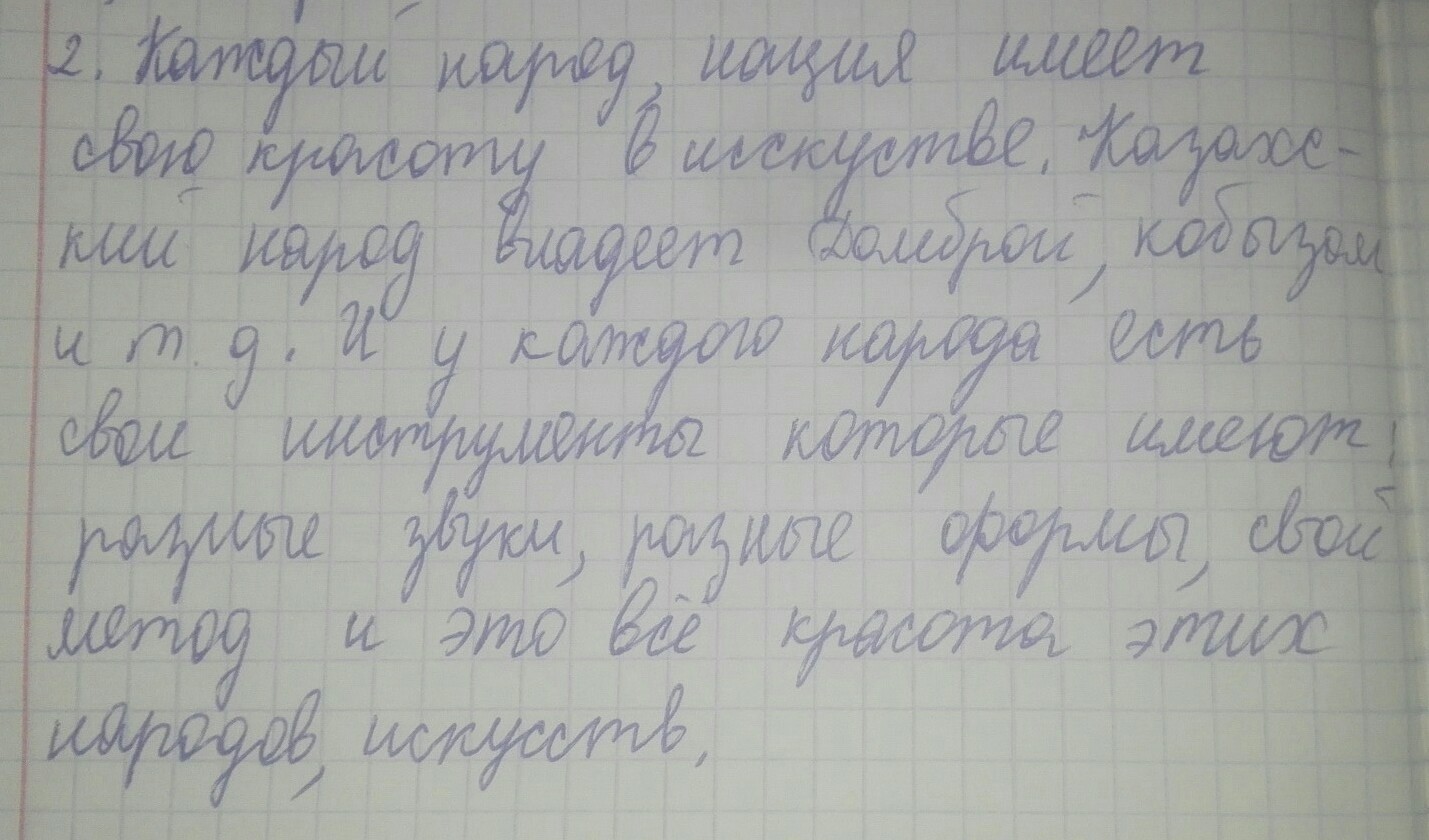 2. Каждый народ, нация имеет
свою красоту в исскустве. Казахс-
кий народ владеет Домброй, кобызом
и т. д. И у каждого народа есть
свои инструменты которые имеют
разные звуки, разные формы, свой
метод и это всё красота этих
народов, искусств.